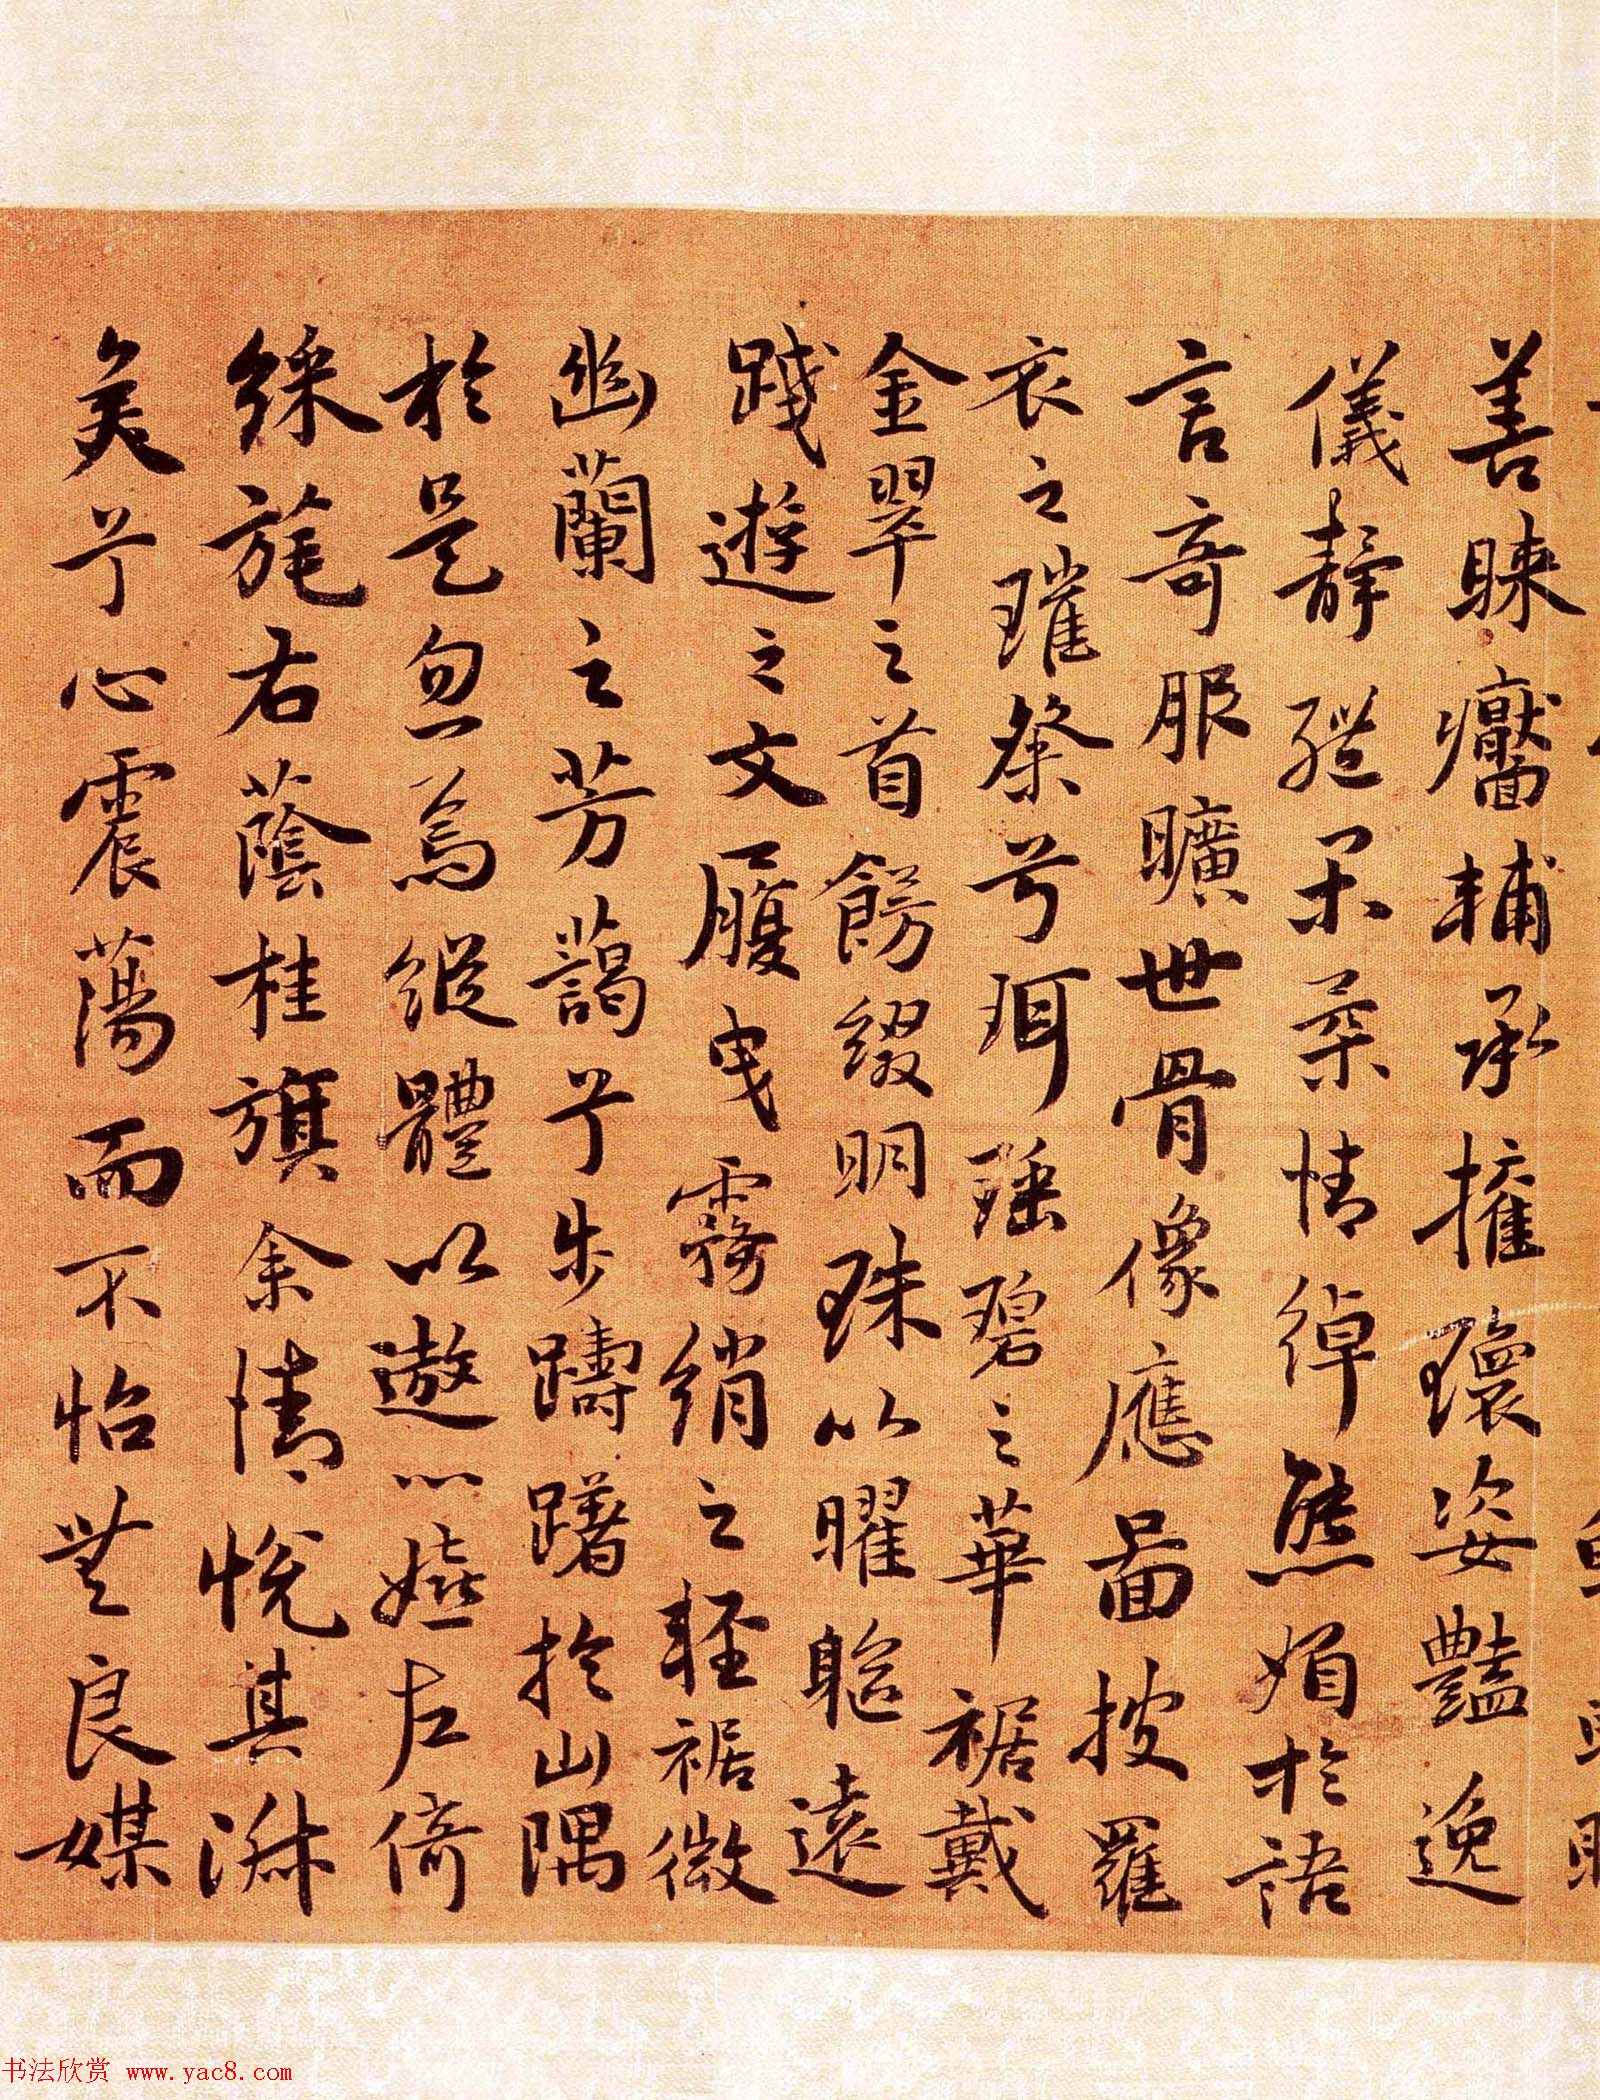 善睞靨輔承擁瓌姿豔逸
儀靜體閑柔情綽態媚於語
言奇服曠世骨像應圖披羅
衣之璀粲兮珥瑤碧之華裾戴
金翠之首飾綴明珠以曜軀遠
踐遊之文履曳霧綃之輕裾微
幽蘭之芳藹兮步躊躇於山隅
於是忽焉縱體以遨以嬉左倚
綵旄右蔭桂旗余情悅其淑
美兮心震蕩而不怡無良媒
书法欣赏 www.yac8.com